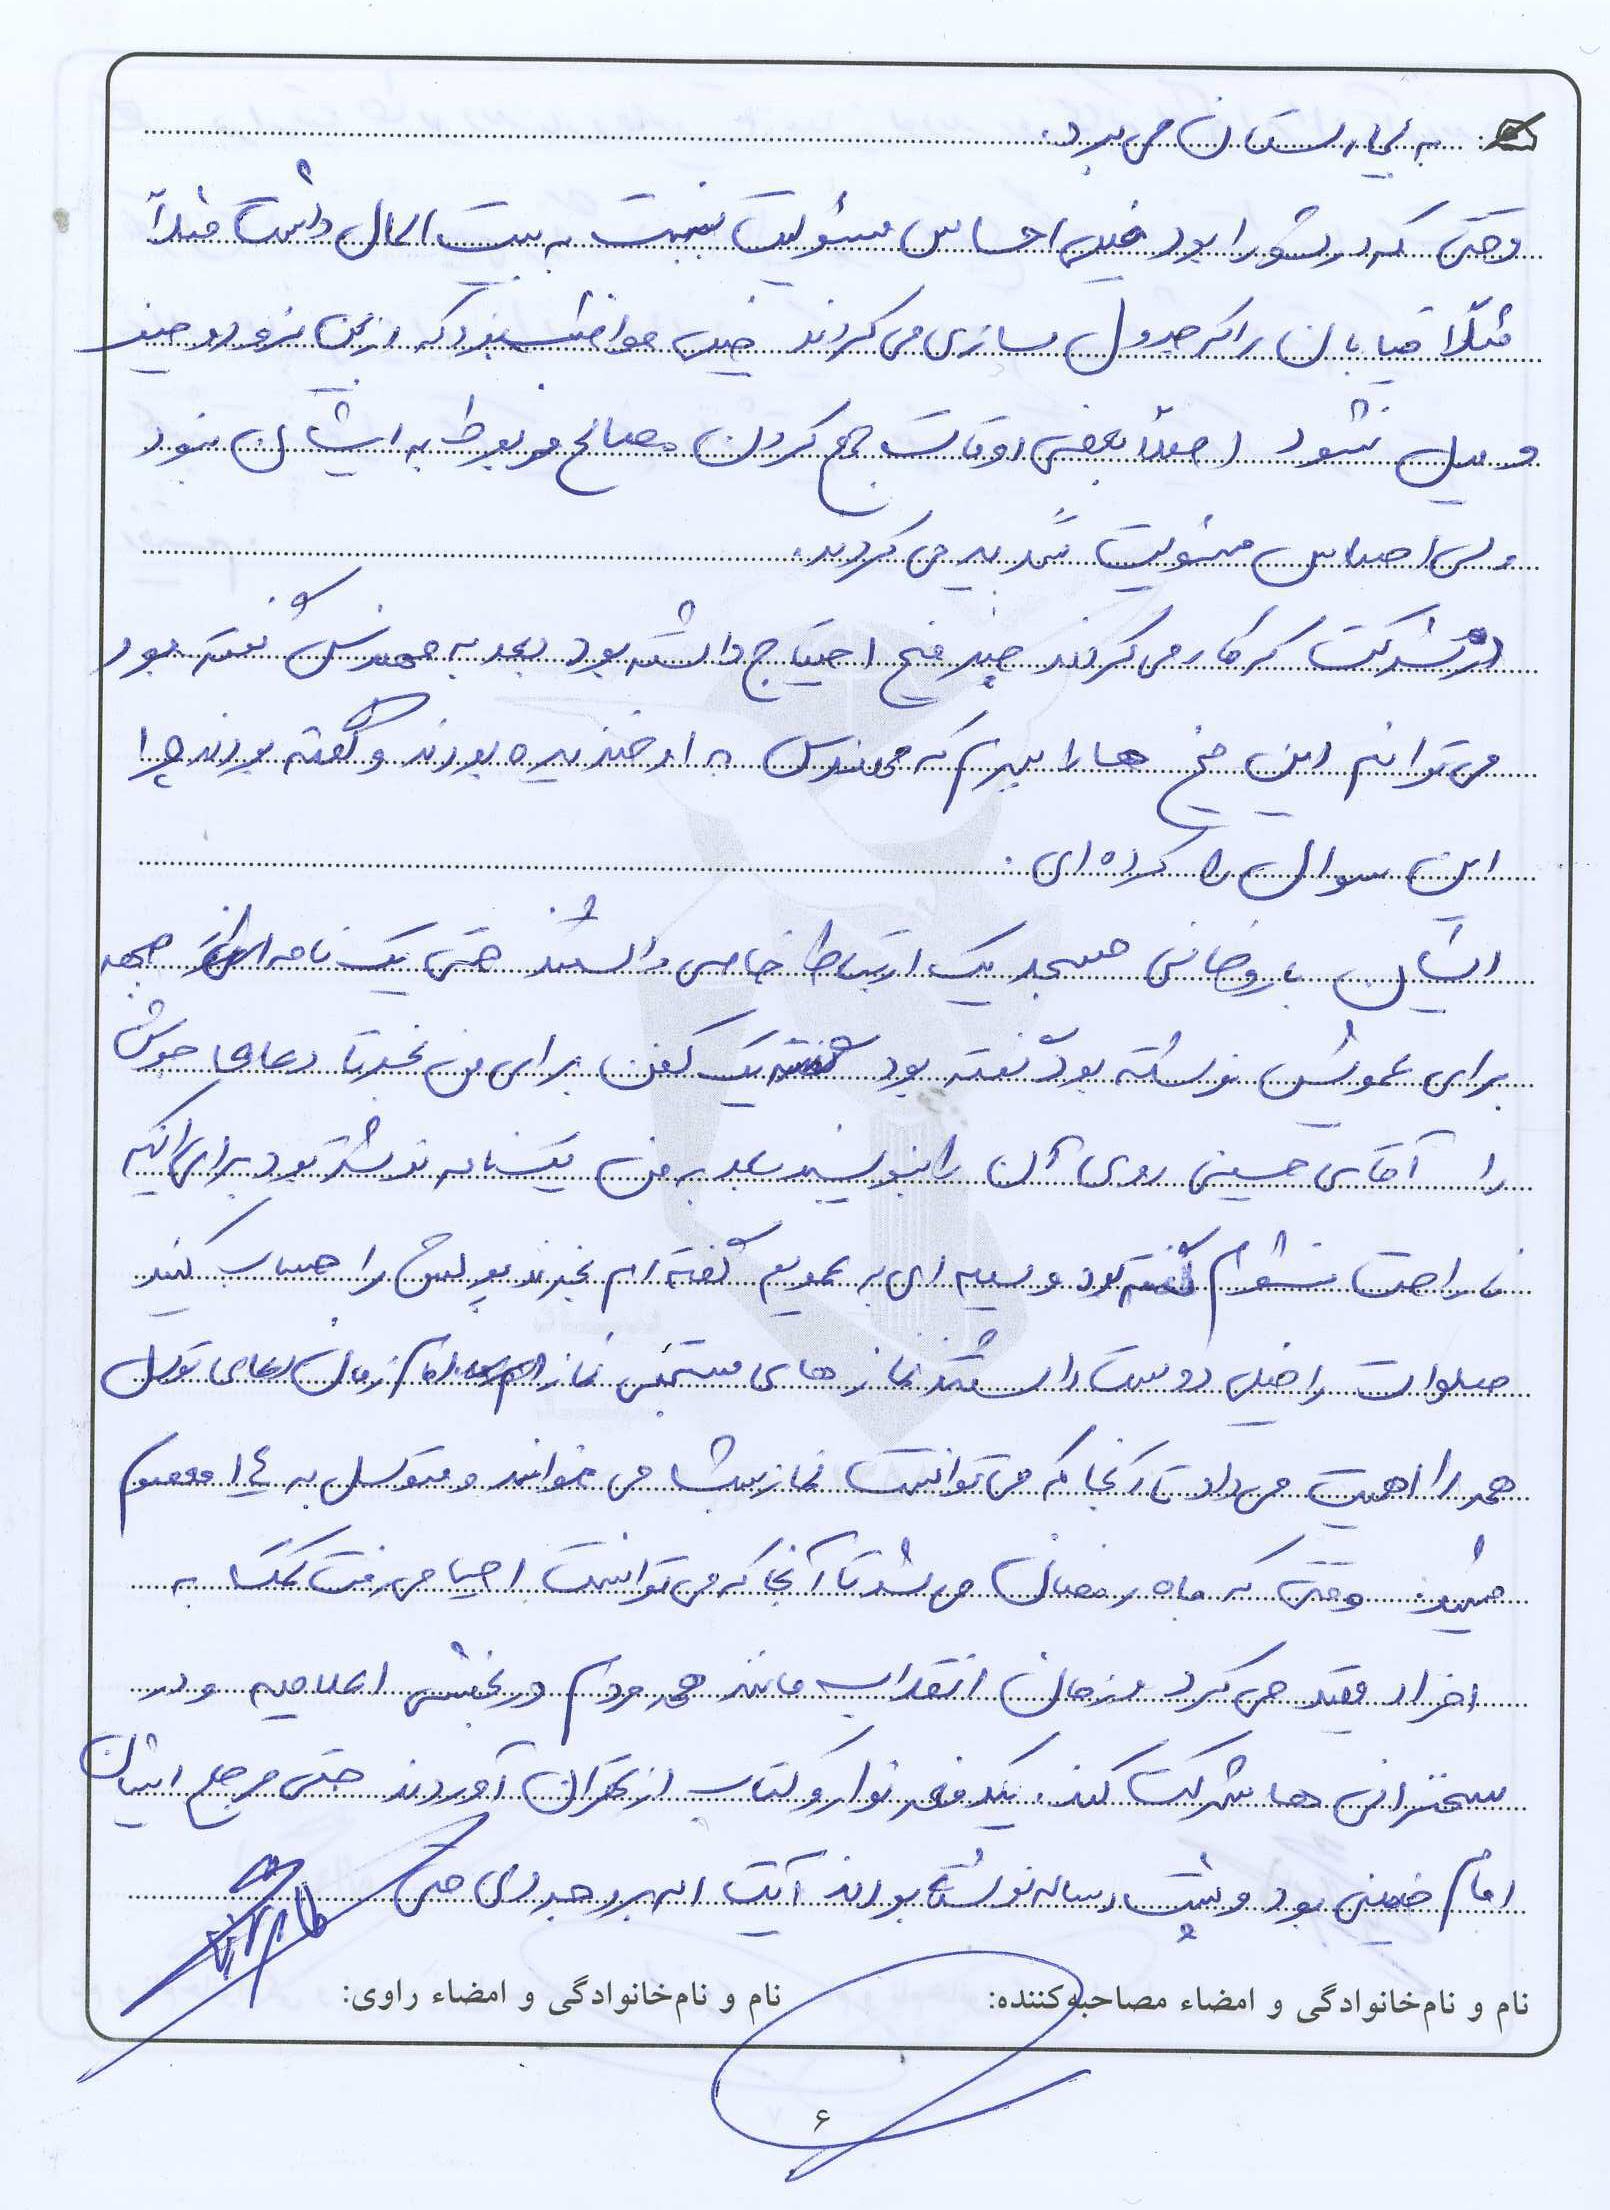 به بیمارستان می برد.
وقتی که در شورا بود خیلی احساس مسئولیت نسبت به بیت المال داشت مثلاً
مثلاً خیابان را که جدول سازی می کردند خیلی مواظب بود که از بین نرود و حیف
و میل نشود اصلاً بعضی اوقات جمع کردن مصالح مربوط به ایشان نبود
ولی احساس مسئولیت شدید می کردند.
در شرکت که کار می کردند چند میخ احتیاج داشته بود بعد به مهندس گفته بود
می توانم این میخ ها را ببرم که مهندس به او خندیده بودند و گفته بودند چرا
این سوال را کرده ای.
ایشان با روحانی مسجد یک ارتباط خاصی داشتند حتی یک نامه از جبهه
برای عمویش نوشته بود گفته بود یک کفن برای من بخرید تا دعای جوشن
را آقای حسینی روی آن را بنویسند بعد به من یک نامه نوشته بود برای اینکه
ناراحت نشوم گفته بود وسیله ای به عمویم گفته ام بخرند پولش را حساب کنید
صلوات را خیلی دوست داشتند نماز های مستحبی نماز امام زمان دعای توسل
همه را اهمیت می داد تا آنجا که می توانست نماز شب می خواند و متوسل به ۱۴ معصوم
میشد. وقتی که ماه رمضان می شد تا آنجا که می توانست احیا می رفت کمک به
افراد فقیر می کرد در زمان انقلاب مانند همه مردم در پخش اعلامیه و در
سخنرانی ها شرکت کند. یکدفعه نوار و کتاب از تهران آوردند حتی مرجع ایشان
امام خمینی بود و پشت رساله نوشته بودند آیت اله بروجردی حتی
نام و نام‌خانوادگی و امضاء مصاحبه‌کننده: نام و نام‌خانوادگی و امضاء راوی:
۶